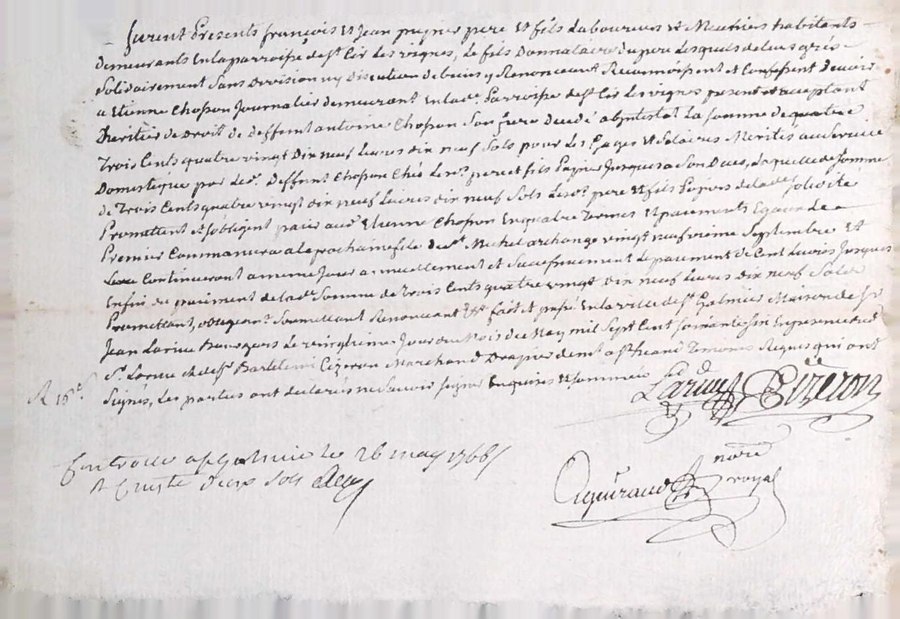 furent Presents françois et Jean pugnet pere et fils Laboureurs et Meuniers habitants
demeurants En la parroisse de st Cir les vignes, le fils
Solidairement Sans Division ny Discution de biens y Renonceant Reconnoissent et Confessent Devoir
a Etienne Chosson Journalier demeurant En lade. Parroisse de st Cir les vignes present et acceptant
heritier de Droit de deffunt antoine Chosson Son frere decedé abintestat la somme de
Trois Cents quatre vingt Dix neuf Livres dix neuf Sols pour les Gages et Salaires Merités au Service
Domestique par led. Deffunt Chosson Chés lesd. pere et fils Jusques a Son Deces, Laquelle de Somme
de Trois Cents quatre vingt Dix neuf Livres dix neuf Sols Lesd. pere et fils de lade. solidité
Promettent et s'obligent paier aud. Etienne Chosson En quatre Termes et paiements Egaux
Premier Commencera a la prochaine fete de st. Michel archange vingt neufvieme Septembre et
Continueront a meme Jour annuellement et Successivement le paiement de Cent Livres Jusques
Enfin du paiement de lade. Somme de Trois Cents quatre vingt Dix neuf Livres dix neuf Sols
Promettant, obligeant, Soumettant Renonceant &a. fait et passé En la ville de st. Galmier Maison de Sr
Jean Larive Bourgeois Le vingtieme Jour du Mois de May mil Sept Cent soixante Six En presence dud.
Sr. Larive et de Sr. Bartelemi Cizeron Marchand Drapier demt. a st. Temoins Requis qui ont
Signés, Les parties ont declarés ne Savoir Signer Enquises et Sommées
Larive Cizeron
Controllé a st Galmier le 26 may 1766
sols
notre
royal